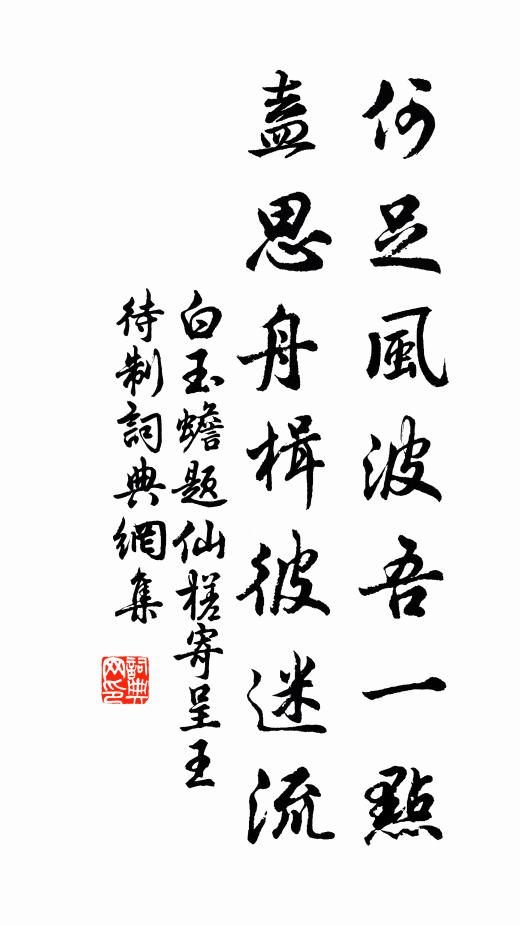 何足風波吾一點
盍思舟楫彼迷流
白玉蟾題仙槎寄呈王
待制詞典網集
詞典網印